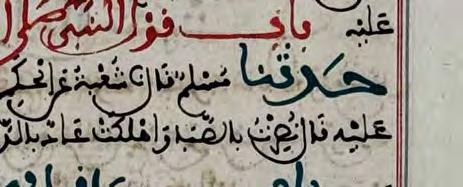 عليه باب قول النبي صلى ا
حدثنا مسلم قال شعبة عن الحكم
عليه قال نصرت بالصبا واهلكت عاد بالد